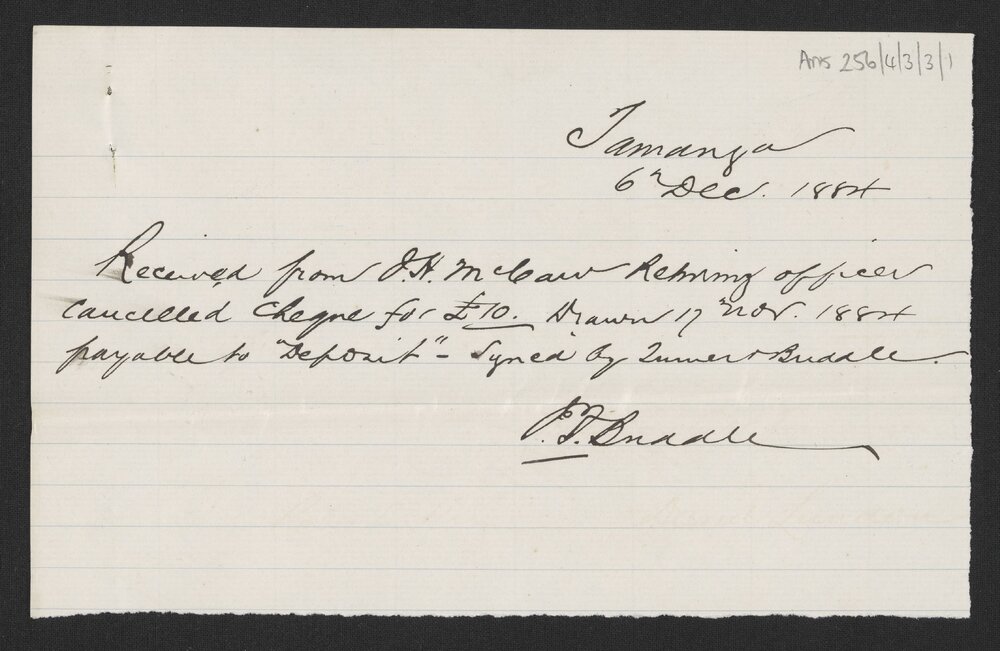 Ans 256/4/3/3/1
Tauranga
6th Dec. 1884
Received from J.H. McCaw Returning officer
cancelled Cheque for £10. Drawn 17th Nov. 1884
payable to "Deposit" – Signed by Turner & Buddle.
Buddle